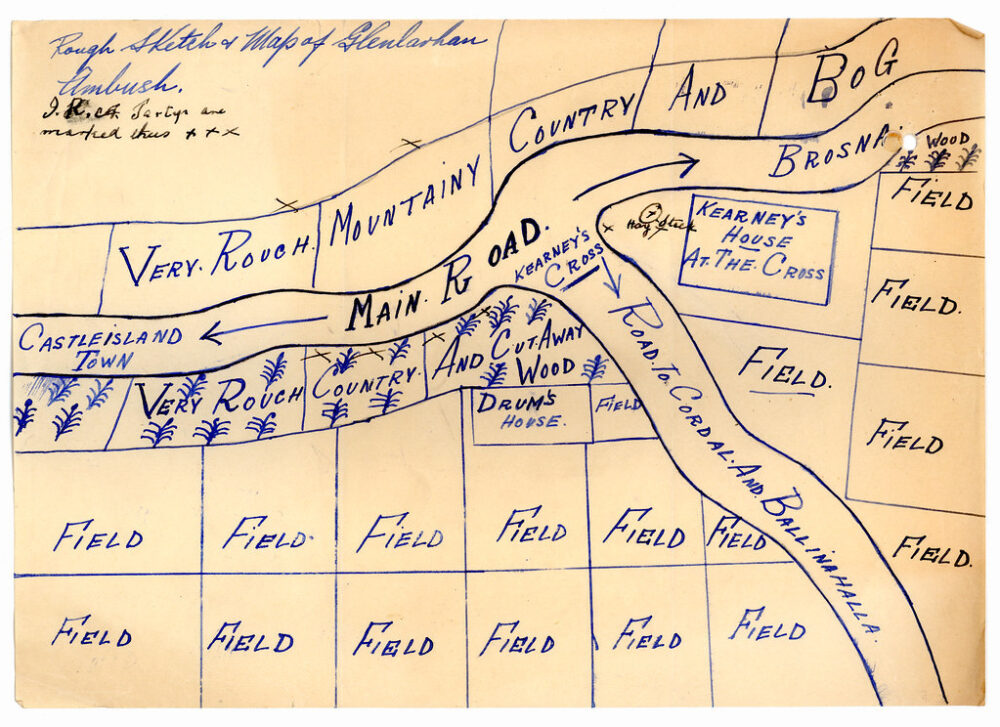 Rough Sketch & Map of Glenlarhan
Ambush.
I.R.A. Partys are
marked thus + + x
VERY ROUGH. MOUNTAINY COUNTRY AND BOG
BROSNA.
WOOD
MAIN ROAD.
KEARNEY'S
CROSS
Hay Stack
KEARNEY'S
HOUSE
AT THE CROSS
CASTLEISLAND
TOWN
VERY ROUGH COUNTRY. AND CUT AWAY
WOOD
DRUM'S
HOUSE.
FIELD
ROAD. TO. CORDAL. AND. BALLINAHALLA.
FIELD.
FIELD
FIELD.
FIELD
FIELD.
FIELD
FIELD.
FIELD
FIELD
FIELD
FIELD
FIELD
FIELD
FIELD
FIELD
FIELD
FIELD